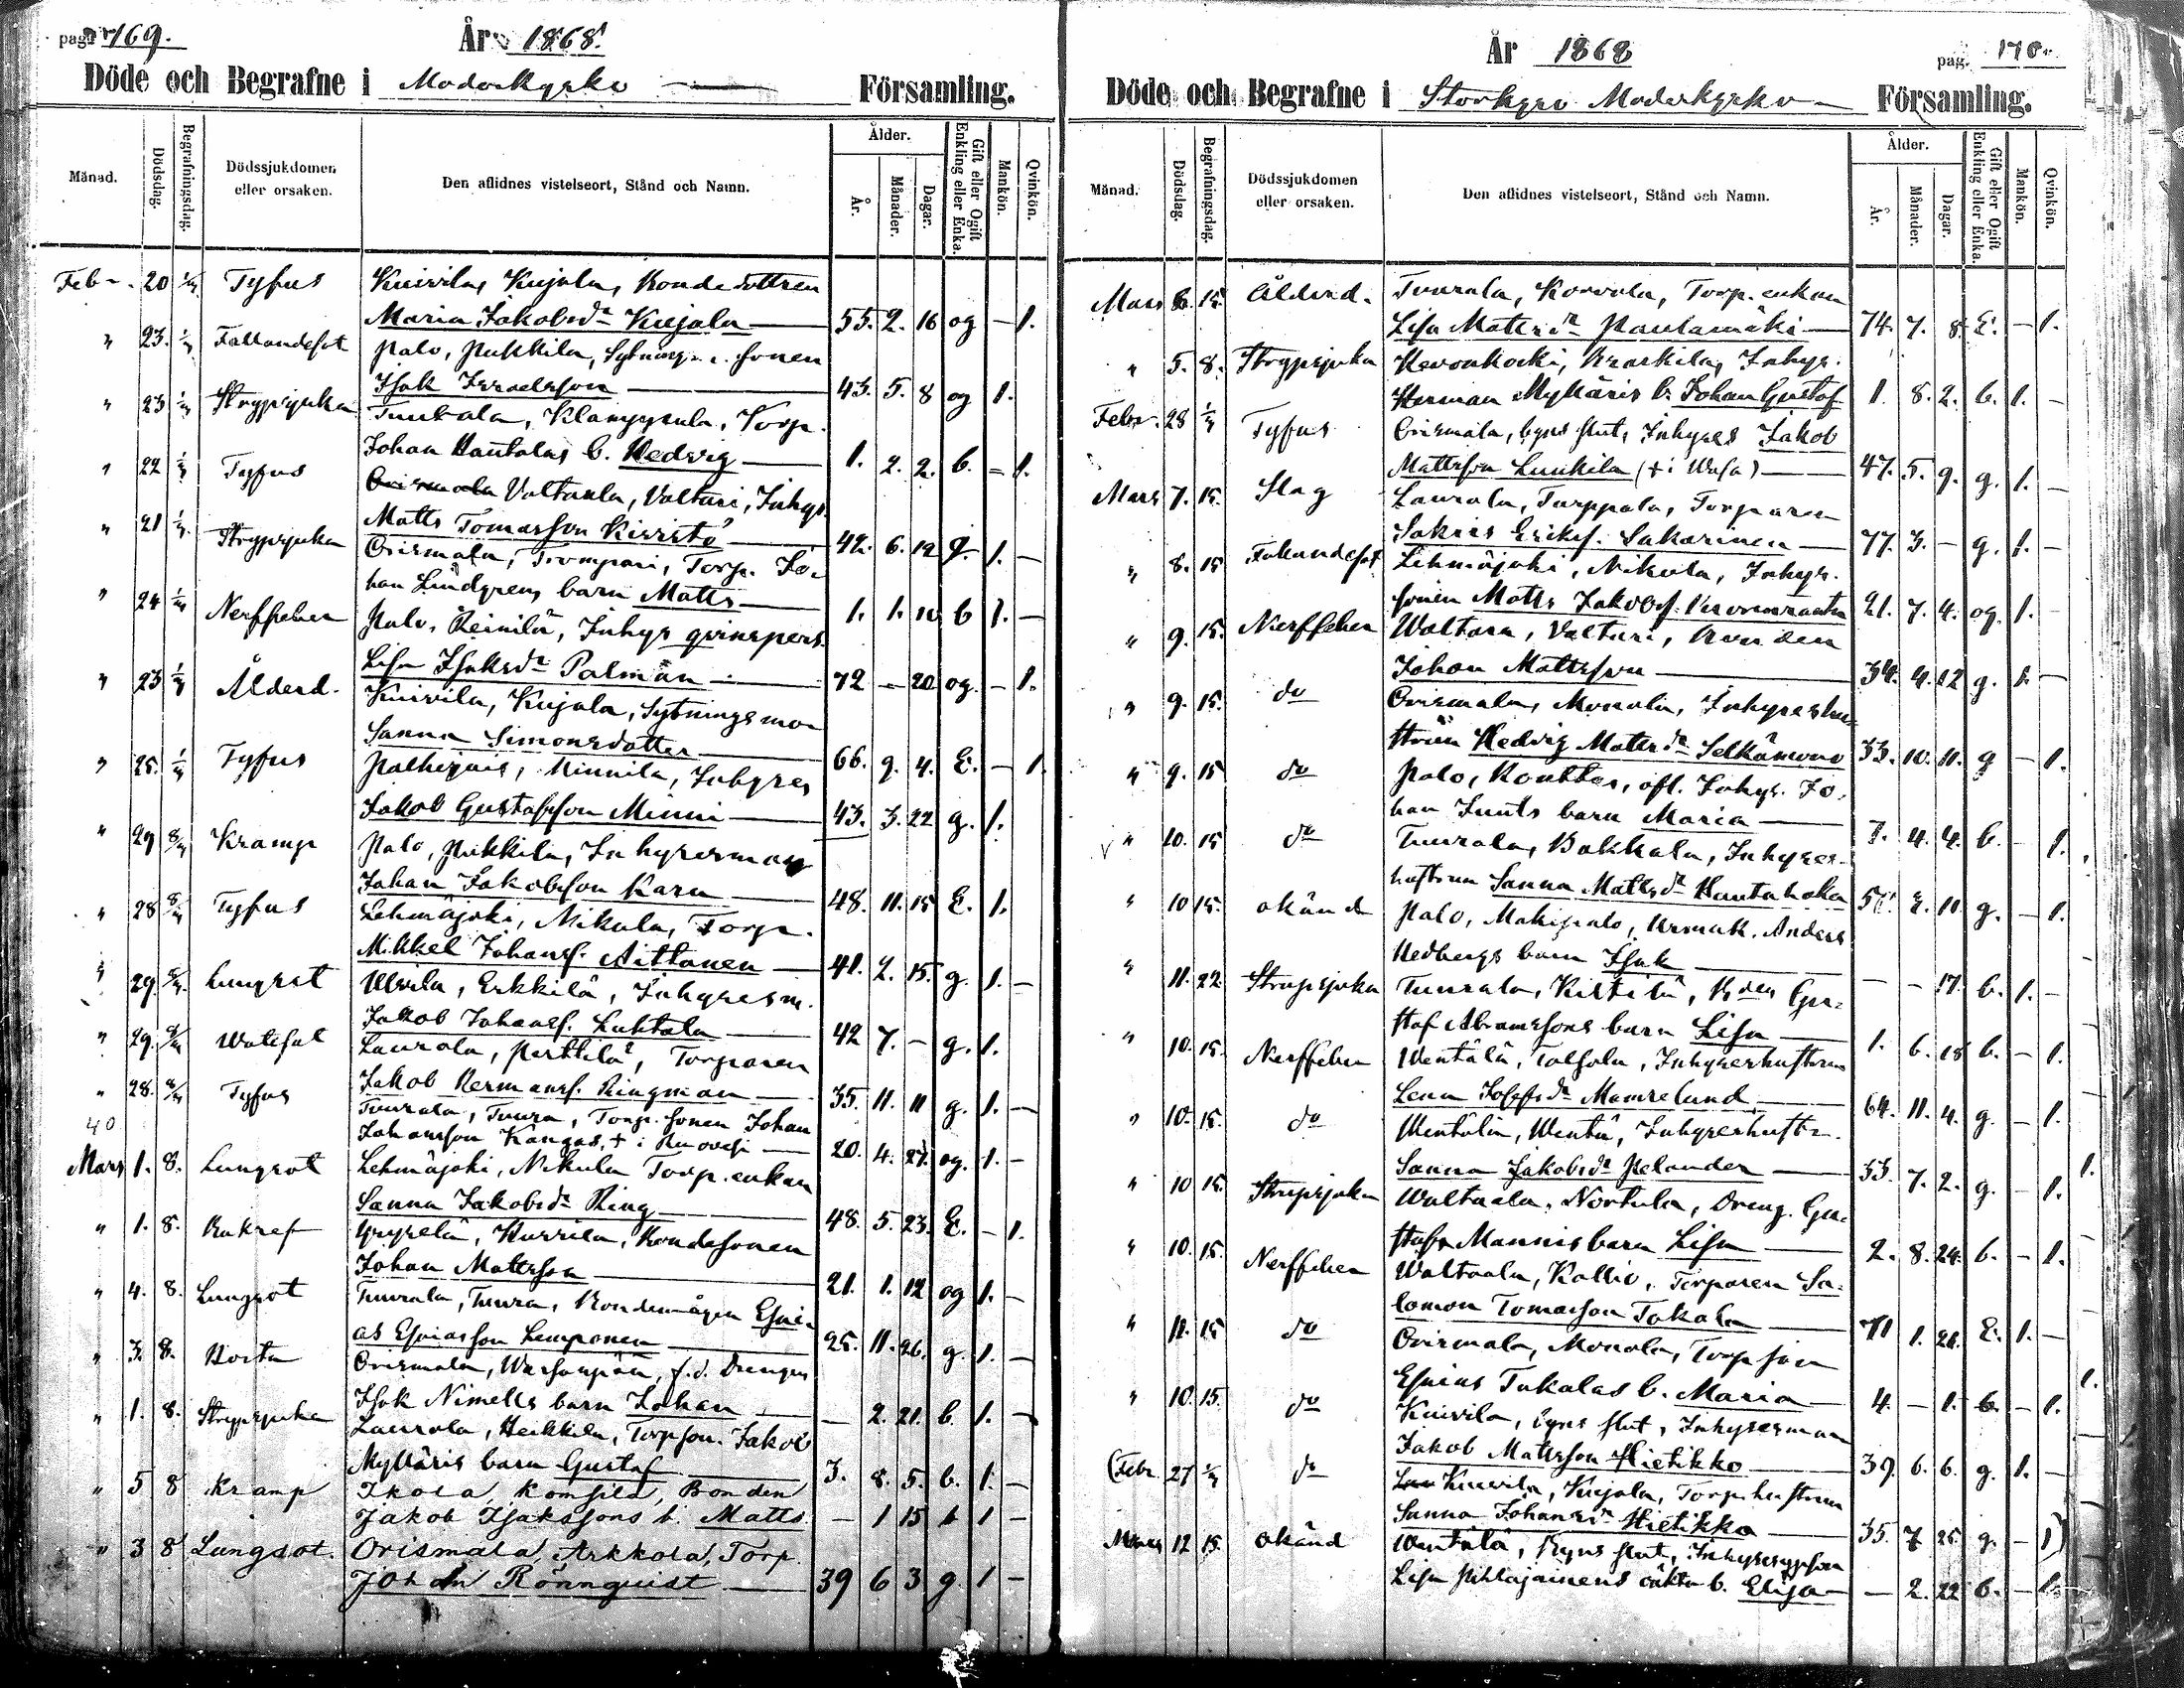 pag. 169.
År 1868.
Döde och Begrafne i Moderkyrko Församling.
Månad. Dödsdag. Begrafningsdag. Dödssjukdomen eller orsaken. Den aflidnes vistelseort, Stånd och Namn. Ålder. År. Månader. Dagar. Gift eller Ogift Enkling eller Enka. Mankön. Qvinkön.
Feb 20 1/3 Tyfus Kuivila, Kujala, Bondedottren
Maria Jakobsdr Kujala 55. 2. 16 og – 1.
" 23. 1/3 Fallandesot Palo, Pukkila, Sytnings sonen
Isak Israelsson 43. 5. 8 og 1.
" 23 1/3 Strypsjuka Tuukala, Klamppula, Torp.
Johan Hautalas b. Hedvig 1. 2. 2. b. – 1.
" 22 1/3 Tyfus Orismala Valtaala, Valturi, Inhys.
Matts Tomasson Kirristö 42. 6. 12 g. 1. –
" 21 1/3 Strypsjuka Orismala, Trompari, Torp. Jo-
han Lindgrens barn Matts 1. 1. 10 b 1. –
" 24 1/3 Nerffeber Palo, Reinilä, Inhys qvinspers.
Lisa Isaksdr Palmän 72 – 20 og. – 1.
" 23 1/3 Ålderd. Kuivila, Kujala, Sytningsmor
Sanna Simonsdotter 66. 9. 4. E. – 1.
" 25. 1/3 Tyfus Palhojais, Minnila, Inhyses
Jakob Gustafsson Minni 43. 3. 22 g. 1.
" 29 8/3 Kramp Palo, Pukkila, Inhysesman
Johan Jakobsson Karu 48. 11. 15 E. 1.
" 28 8/3 Tyfus Lehmäjoki, Nikula, Torp.
Mikkel Johansf. Aittanen 41. 2. 15. g. 1. –
" 29. 8/3 Lungsot Ulvila, Erkkilä, Inhysesm.
Jakob Johansf. Luhtala 42 7. – g. 1.
" 29. 8/3 Watesot Laurola, Perttilä, Torparen
Jakob Hermansf. Ringman 35. 11. 11 g. 1. –
" 28. 8/3 Tyfus Tuurala, Tuura, Torp. sonen Johan
Johansson Kangas, + i Ruovesi 20. 4. 27. og. 1. –
40
Mars 1. 8. Lungsot Lehmäjoki, Nikula Torp. enkan
Sanna Jakobsdr Ring 48. 5. 23. E. – 1.
" 1. 8. Kurrila, Bondesonen
Johan Mattsson 21. 1. 12 og 1. –
" 4. 8. Lungsot Tuurala, Tuura, Bondemågen Esai-
as Esaiasson Lemponen 25. 11. 26. g. 1. –
" 3. 8. Orismala, f.d. Drengen
Isak Nimells barn Johan – 2. 21. b. 1. –
" 1. 8. Strypsjuka Laurola, Heikkila, Torpson. Jakob
Mylläris barn Gustaf 3. 8. 5. b. 1. –
" 5 8 Kramp Ikola, Komsila, Bonden
Jakob Isakssons b. Matts – 1 15 b 1 –
" 3 8 Lungsot. Orismala, Arkkola, Torp.
Johan Rönnquist 39 6 3 g 1 –
År 1868
pag. 170.
Döde och Begrafne i Storkyro Moderkyrko Församling.
Månad. Dödsdag. Begrafningsdag. Dödssjukdomen eller orsaken. Den aflidnes vistelseort, Stånd och Namn. Ålder. År. Månader. Dagar. Gift eller Ogift Enkling eller Enka. Mankön. Qvinkön.
Mars 6. 15. Ålderd. Tuurala, Korvola, Torp. enkan
Lisa Mattsdr Rautamäki 74. 7. 8. E. – 1.
" 5. 8. Strypsjuka Hevonkoski, Inhys.
Herman Mylläris b. Johan Gustaf 1. 8. 2. b. 1. –
Febr. 28 1/3 Tyfus Orismala, byns slut, Inhyses Jakob
Mattsson Luukila (+ i Wasa) 47. 5. 9. g. 1. –
Mars 7. 15. Slag Laurola, Turppala, Torparen
Sakris Eriksf. Sakarinen 77. 3. – g. 1. –
" 8. 15 Fallandesot Lehmäjoki, Nikula, Inhys.
sonen Matts Jakobsf. 21. 7. 4. og. 1. –
" 9. 15. Nerffeber Waltaala, Valturi, Bonden
Johan Mattsson 34. 4. 12 g. 1. –
" 9. 15. do Orismala, Monola, Inhyseshu-
strun Hedvig Mattsdr Selkämono 33. 10. 11. g – 1.
" 9. 15 do Palo, Kouttos, afl. Inhys. Jo-
han Junts barn Maria 7. 4. 4. b. – 1.
" 10. 15 do Tuurala, Bakkala, Inhyses-
hustrun Sanna Mattsdr Hautahoka 10. g. – 1.
" 10 15. okänd Palo, Makipalo, Anders
Hedbergs barn Isak – – 17. b. 1. –
" 11. 22. Strypsjuka Tuurala, Kistilä, Bden Gu-
staf Abramssons barn Lisa 1. 6. 18 b. – 1.
" 10. 15. Nerffeber Wentälä, Talsola, Inhyseshustrun
Lena Josefsdr Mamrelund 64. 11. 4. g – 1.
" 10. 15. do Wentälä, Wentä, Inhyseshustr.
Sanna Jakobsdr Pelander 33. 7. 2. g. – 1.
" 10 15. Strypsjuka Waltaala, Nortula, Dreng. Gu-
stafs Mannis barn Lisa 2. 8. 24. b. – 1.
" 10. 15. Nerffeber Waltaala, Kallio, Torparen Sa-
lomon Tomasson Takala 71 1. 21. E. 1. –
" 11. 15 do Orismala, Monola, Torpson
Esaias Takalas b. Maria 4. – 1. b. – 1.
" 10. 15. do Kuivila, byns slut, Inhysesman
Jakob Mattsson Hietikko 39. 6. 6. g. 1. –
(Febr. 27 1/3 do Kuivila, Kujala, Torp. hustrun
Sanna Johansdr Hietikko 35. 7 25. g. – 1)
Mars 12 15. okänd Wentälä, byns slut,
Lisa Pihlajainens oäkta b. Elisa – 2. 22 b. – 1.